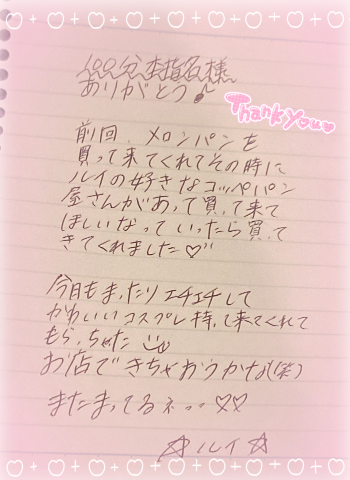 100分本指名様
ありがとう♪
Thank you
前回、メロンパンを
買って来てくれてその時に
ルイの好きなコッペパン
屋さんがあって買って来て
ほしいなっていったら買って
きてくれました♡
今日もまったりエチエチして
かわいいコスプレ持って来てくれて
もらっちゃた
お店できちゃおうかな(笑)
またまってるネっっ♡♡
☆ルイ☆